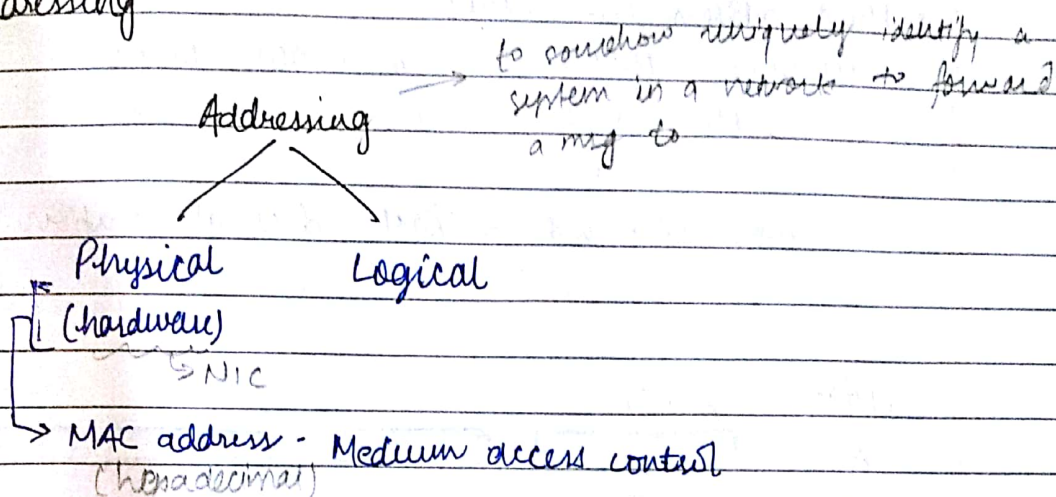 dressing
to somehow uniquely identify a
system in a network to forward
a msg to
Addressing
Physical Logical
(hardware)
NIC
MAC address - Medium access control
(hexadecimal)